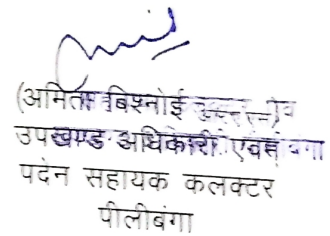 (अमिता बिश्नोई
उपखण्ड अधिकारी एवं
पदेन सहायक कलक्टर
पीलीबंगा